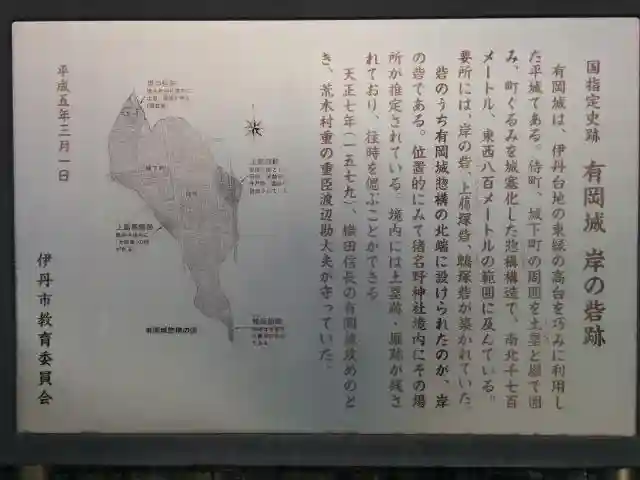 国指定史跡 有岡城 岸の砦跡
有岡城は、伊丹台地の東縁の高台を巧みに利用し
た平城である。侍町、城下町の周囲を土塁と堀で囲
み、町ぐるみを城塞化した惣構構造で、南北千七百
メートル、東西八百メートルの範囲に及んでいる。
要所には、岸の砦、上臈塚砦、鵯塚砦が築かれていた。
砦のうち有岡城惣構の北端に設けられたのが、岸
の砦である。位置的にみて猪名野神社境内にその場
所が推定されている。境内には土塁跡・堀跡が残さ
れており、往時を偲ぶことができる
天正七年(一五七九)、織田信長の有岡城攻めのと
き、荒木村重の重臣渡辺勘大夫が守っていた。
有岡城惣構の図
平成五年三月一日
伊丹市教育委員会